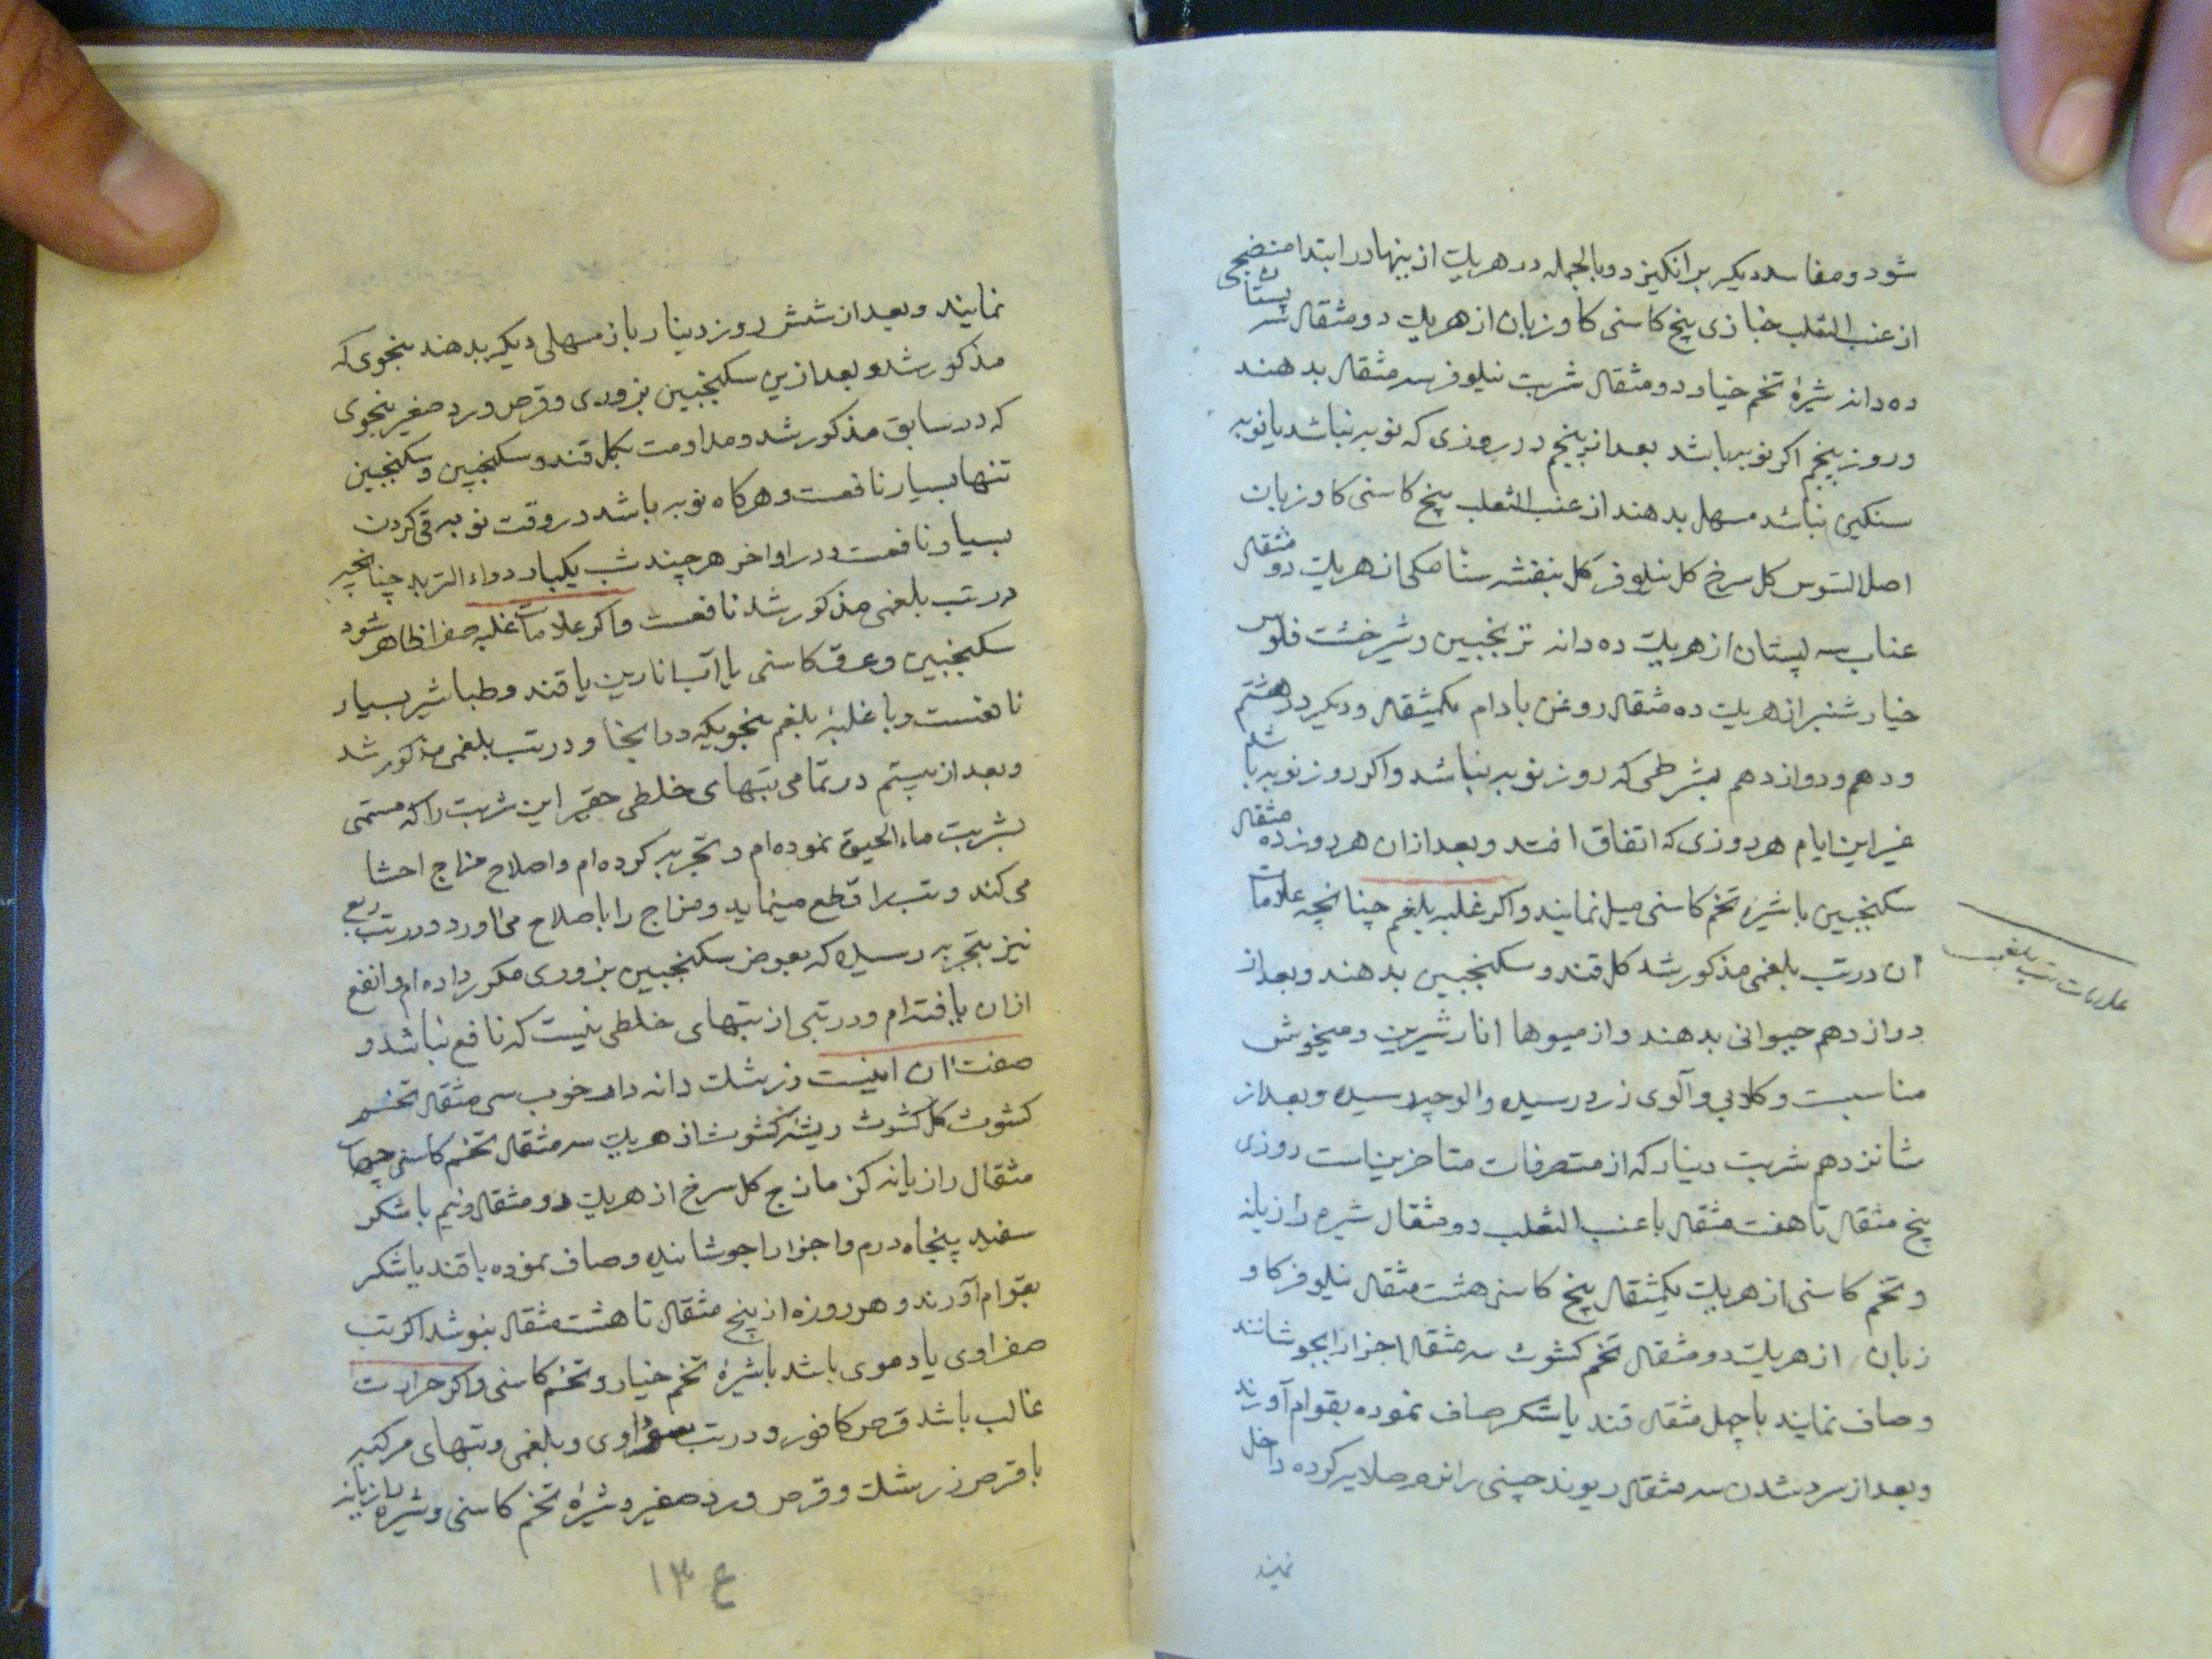 شود و مفاسد دیکر برانکیزد و بالجمله در هریک از ینها در ابتدا منضجی
از عنب الثعلب خبازی بیخ کاسنی کاوزبان از هریک دو مثقال سپستان
ده دانه شیرهٔ تخم خیار دو مثقال شربت نیلوفر سه مثقال بدهند
و روز پنجم اکر نوبه باشد بعد از پنجم در روزی که نوبه نباشد یا نوبه
سنکین نباشد مسهل بدهند از عنب الثعلب بیخ کاسنی کاوزبان
اصل السوس کل سرخ کل نیلوفر کل بنفشه سنامکی از هریک دو مثقال
عناب سپستان از هریک ده دانه ترنجبین و شیرخشت فلوس
خیارشنبر از هریک ده مثقال روغن بادام یکمثقال و دیکر در هشتم
و دهم و دوازدهم بشرطی که روز نوبه نباشد و اکر روز نوبه باشد
غیر این ایام هر روزی که اتفاق افتد و بعد از ان هر روز ده مثقال
سکنجبین با شیرهٔ تخم کاسنی میل نمایند و اکر غلبه بلغم چنانچه علامات
ان در تب بلغمی مذکور شد کل قند و سکنجبین بدهند و بعد از
علامات تب بلغمی
دوازدهم حیوانی بدهند و از میوها انار شیرین و میخوش
مناسبست و کلابی و آلوی زرد رسیده و الوچه رسیده و بعد از
شانزدهم شربت دینار که از متصرفات متاخرین است روزی
پنج مثقال تا هفت مثقال با عنب الثعلب دو مثقال شیره رازیانه
و تخم کاسنی از هریک یکمثقال بیخ کاسنی هشت مثقال نیلوفر کاو
زبان از هریک دو مثقال تخم کشوث سه مثقال اجزا را بجوشانند
و صاف نمایند با چهل مثقال قند یا شکر صاف نموده بقوام آورند
و بعد از سرد شدن سه مثقال ریوند چینی را نرم صلایه کرده داخل
نمایند
نمایند و بعد از شش روز دینار باز مسهلی دیکر بدهند بنجوی که
مذکور شد و بعد ازین سکنجبین بزوری و قرص ورد صغیر بنجوی
که در سابق مذکور شد و مداومت بکل قند و سکنجبین و سکنجبین
تنها بسیار نافعست و هرکاه نوبه باشد در وقت نوبه قی کردن
بسیار نافعست و در اواخر هر چند شب یکبار دواء التربد چنانچه
در تب بلغمی مذکور شد نافعست و اکر علامات غلبه صفرا ظاهر شود
سکنجبین و عرق کاسنی یا آب انارین یا قند و طباشیر بسیار
نافعست و با غلبهٔ بلغم بنجویکه در اینجا و در تب بلغمی مذکور شد
و بعد از بیستم در تمامی تبهای خلطی حقیر این شربت را که مسمی
بشربت ماء الحیوة نموده ام و تجربه کرده ام و اصلاح مزاج احشا
می کند و تب را قطع مینماید و مزاج را باصلاح می اورد و در تب ربع
نیز بتجربه رسیده که بعوض سکنجبین بزوری مکرر داده ام و انفع
از ان یافته ام و در تبی از تبهای خلطی نیست که نافع نباشد و
صفت ان اینست زرشک دانه دار خوب سی مثقال تخم
کشوث کل کشوث ریشه کشوث از هریک سه مثقال تخم کاسنی چهار
مثقال رازیانه کزمازج کل سرخ از هریک دو مثقال و نیم با شکر
سفید پنجاه درم و اجزا را جوشانیده و صاف نموده با قند یا شکر
بقوام آورند و هر روزه از پنج مثقال تا هشت مثقال بنوشد اکر تب
صفراوی یا دموی باشد با شیرهٔ تخم خیار و تخم کاسنی و اکر حرارت
غالب باشد قرص کافور و در تب سوداوی و بلغمی و تبهای مرکبه
با قرص زرشک و قرص ورد صغیر و شیرهٔ تخم کاسنی و شیره رازیانه
ع ١٣